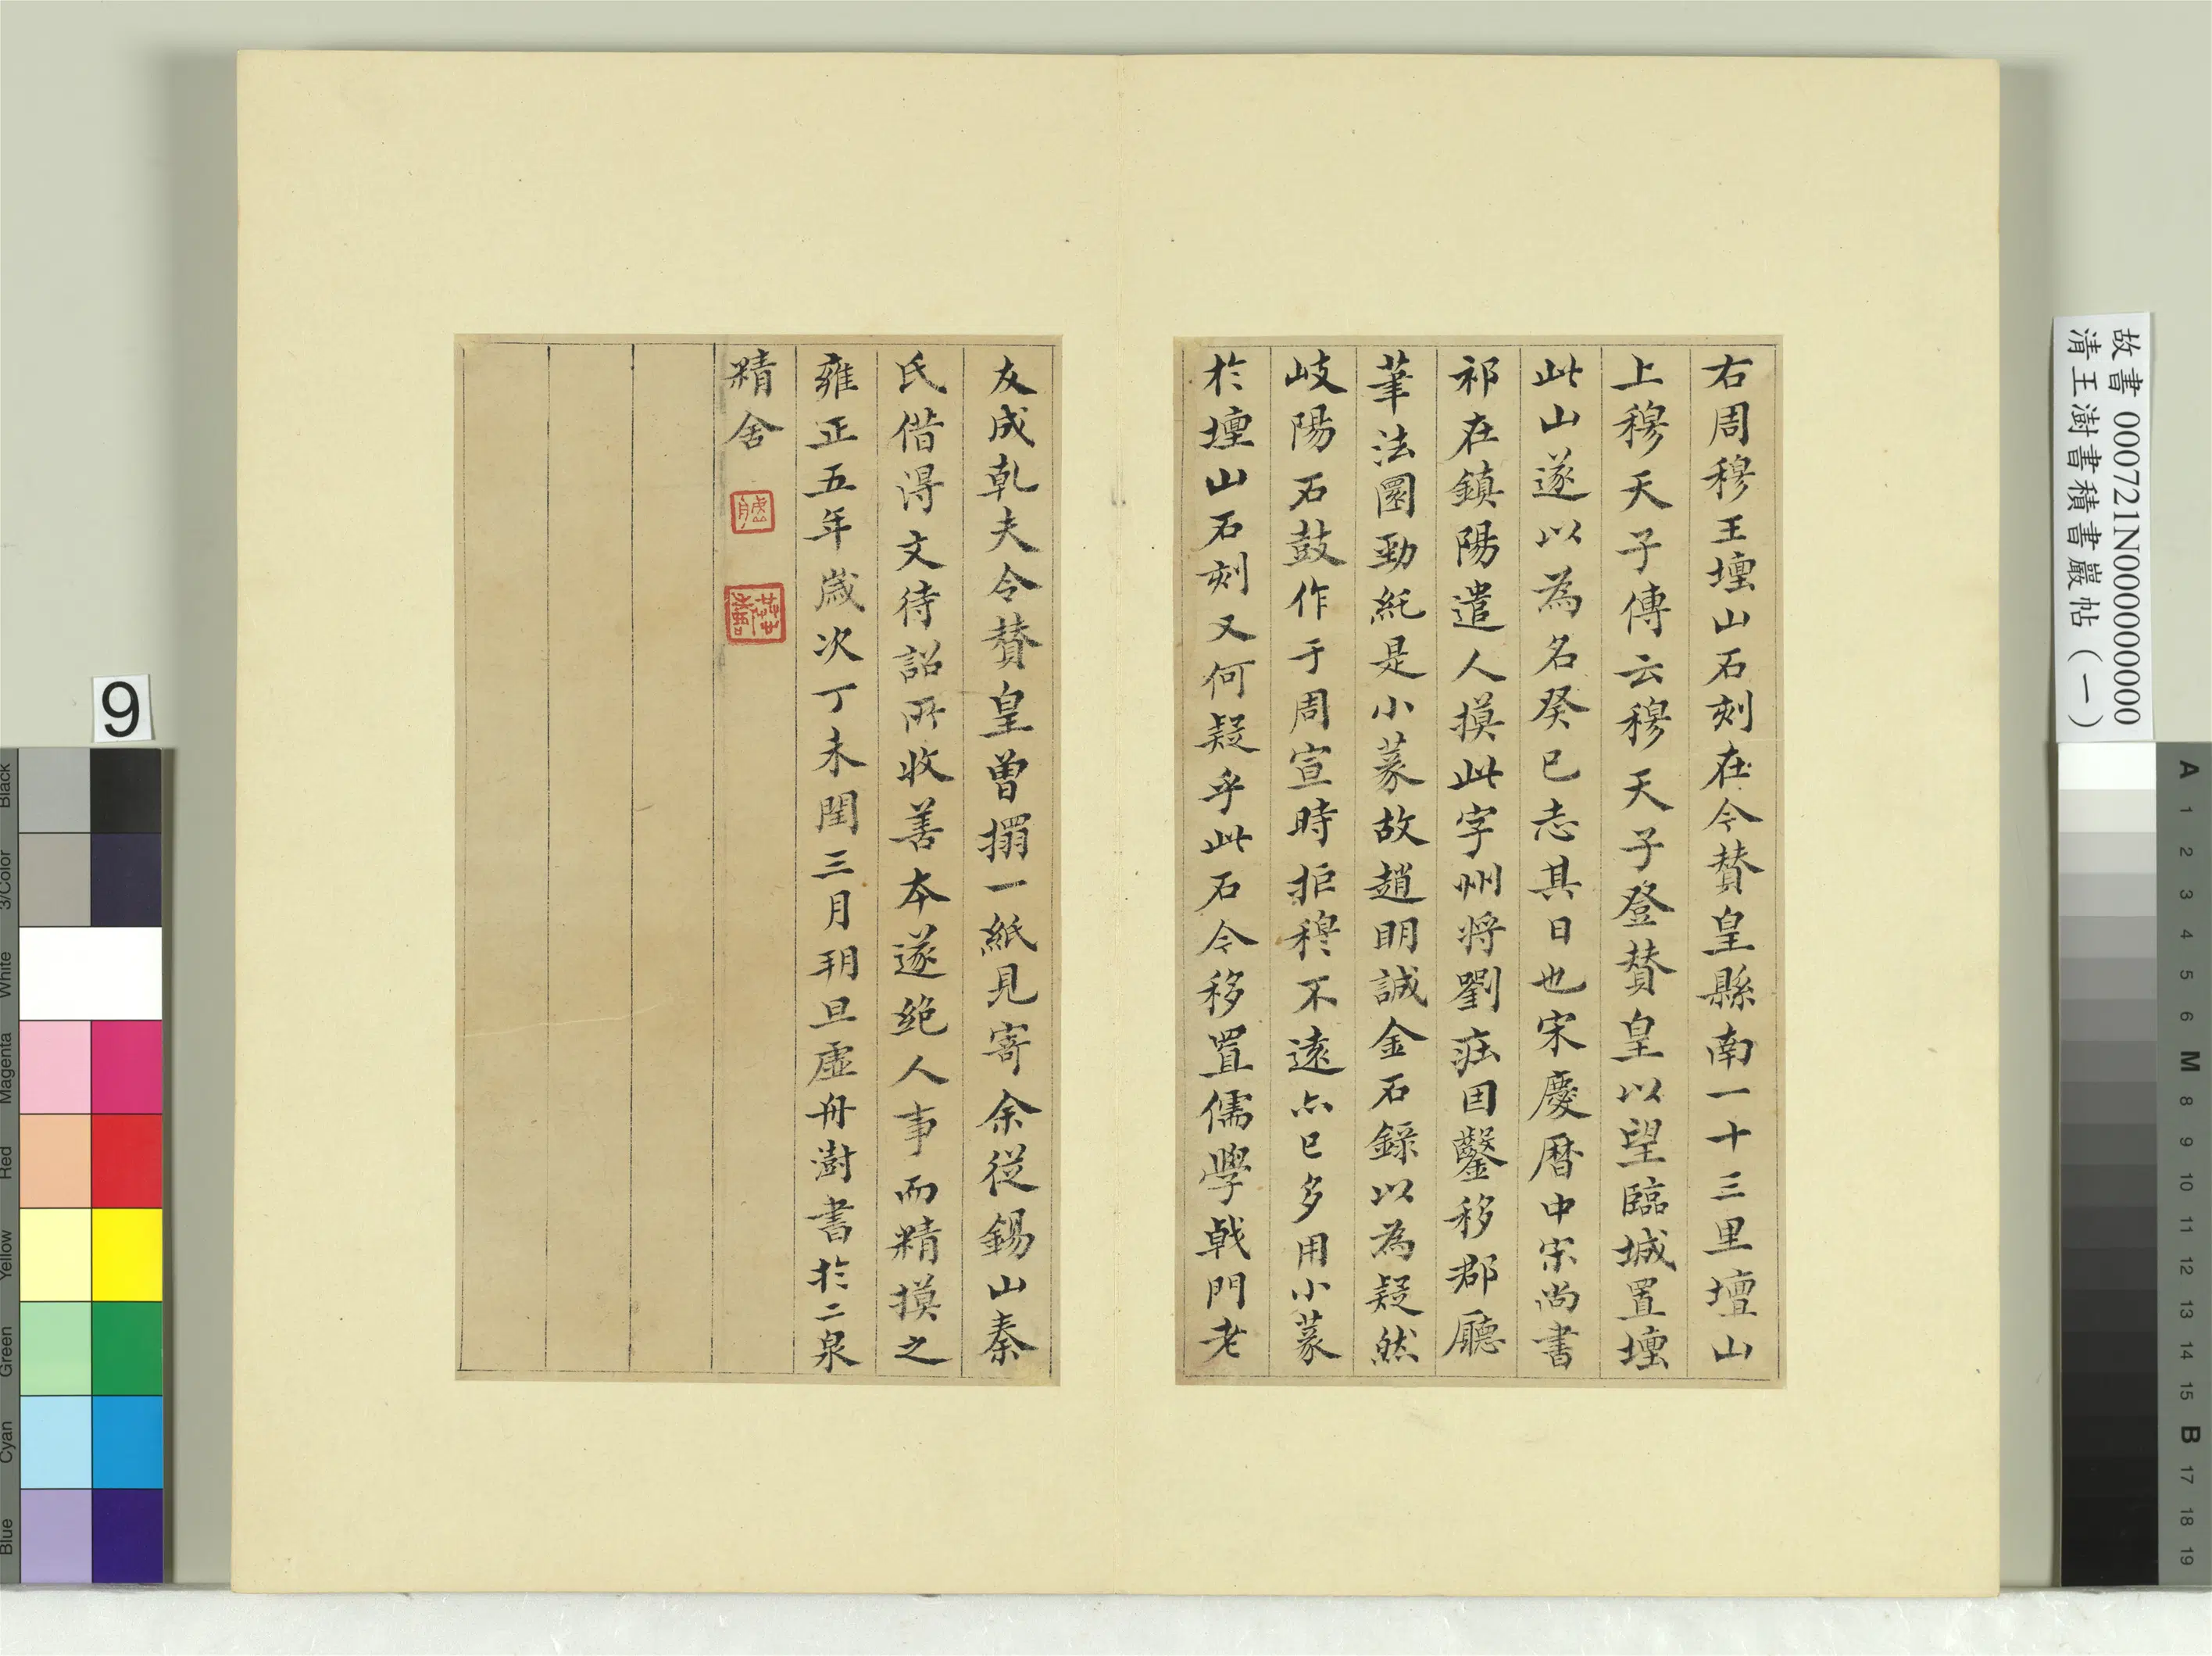 右周穆王壇山石刻在今贊皇縣南一十三里壇山
上穆天子傳云穆天子登贊皇以望臨城置壇
此山遂以為名癸已志其日也宋慶曆中宋尚書
祁在鎮陽遣人摸此字州將劉莊因鑿移郡廳
筆法圜勁純是小篆故趙明誠金石錄以為疑然
岐陽石鼓作于周宣時拒穆不遠亦已多用小篆
於壇山石刻又何疑乎此石今移置儒學戟門老
友成乾夫令贊皇曾搨一紙見寄余從錫山秦
氏借得文待詔所收善本遂絕人事而精摸之
雍正五年歲次丁未閏三月朔旦虛舟澍書於二泉
精舍
故書 000721N000000000
清王澍書積書巖帖（一）
9
Black
3/Color
White
Magenta
Red
Yellow
Green
Cyan
Blue
A
1
2
3
4
5
6
M
8
9
10
11
12
13
14
15
B
17
18
19